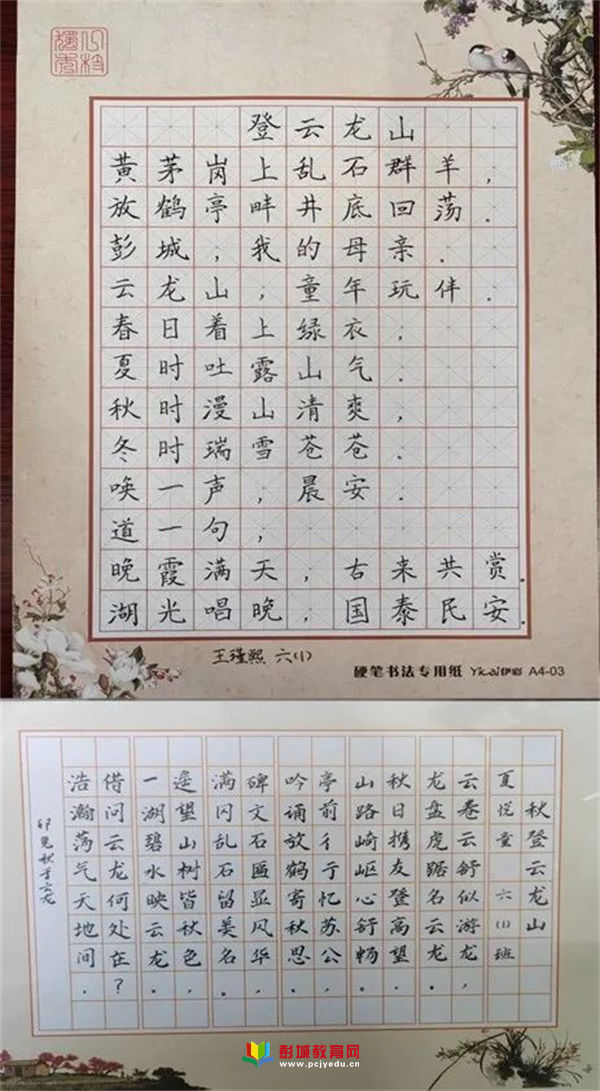 登云龙山
黄茅岗上乱石群羊，
放鹤亭畔井底回荡.
彭城，我的母亲.
云龙山；童年玩伴.
春日着上绿衣，
夏时吐露山气.
秋时漫山清爽，
冬时瑞雪苍苍.
唤一声，晨安.
道一句，
晚霞满天，古来共赏.
湖光唱晚，国泰民安.
王瑾熙 六(1)
硬笔书法专用纸 Yicai伊彩 A4-03
秋登云龙山
夏悦童 六(1)班
云卷云舒似游龙，
龙盘虎踞名云龙.
秋日携友登高望，
山路崎岖心舒畅.
亭前彳亍忆苏公，
吟诵放鹤寄秋思.
碑文石匾显风华，
满冈乱石留美名.
遥望山树皆秋色，
一湖碧水映云龙.
借问云龙何处在？
浩瀚荡气天地间.
卯兔秋于云龙
彭城教育网
www.pcjyedu.cn